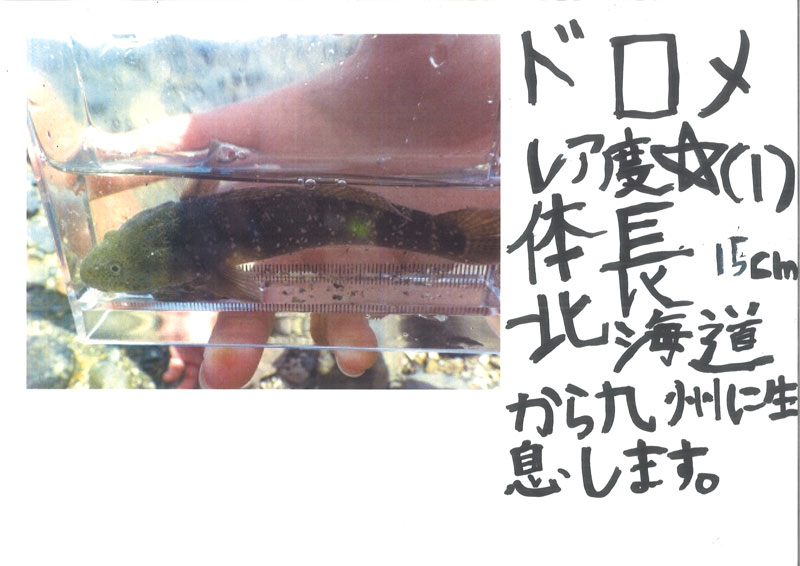 ドロメ
レア度☆(1)
体長 15cm
北海道
から九州に生
息します。